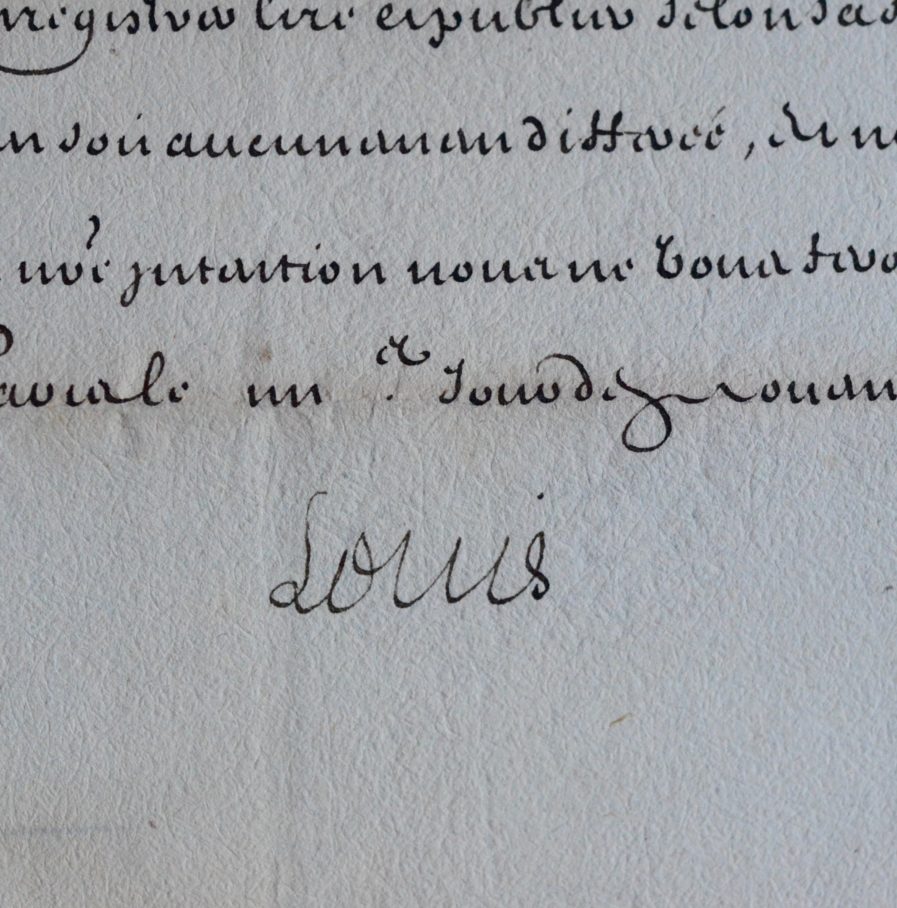 nregistrer lire et publier selon sa
en soit aucunement differé, Et n
nore Intention nous ne vous fero
Paris le un.e Jour de Novem
Louis